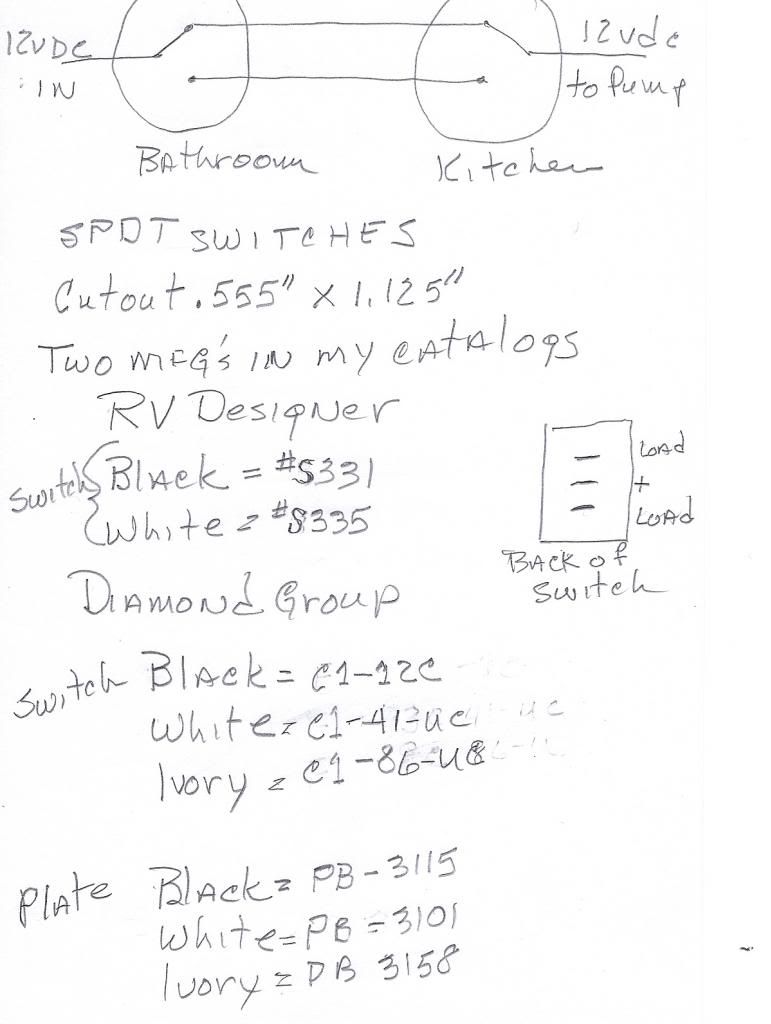 12VDC
IN
12vdc
to Pump
BAthroom
Kitchen
SPDT SWITCHES
Cutout .555" X 1.125"
Two MFG's IN my CAtAlogs
RV Designer
Switch
BlAck = #S331
White = #S335
LOAD
+
LOAD
BACK of
Switch
DIAMOND Group
Switch BlAck = C1-12C
White = C1-41-UC
Ivory = C1-86-UC
PlAte BlAck = PB-3115
White = PB-3101
Ivory = PB 3158